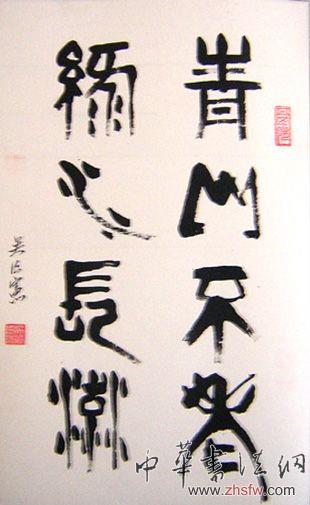 青山不老
綠水長流
吴法宪
中華書法網
www.zhsfw.com